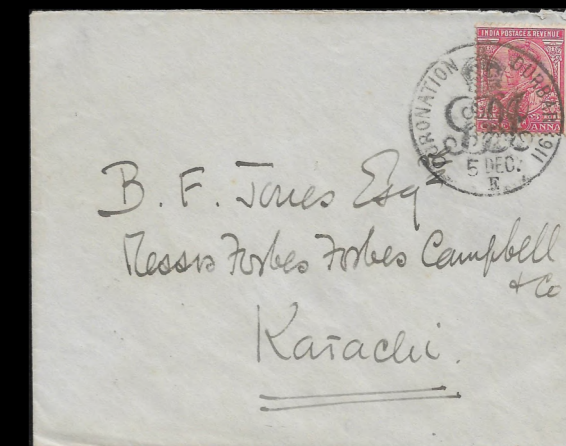 INDIA POSTAGE & REVENUE
CORONATION DURBAR 1911
ANNA
5 DEC.
E
B. F. Jones Esqr
Messrs Forbes Forbes Campbell
& Co
Karachi.